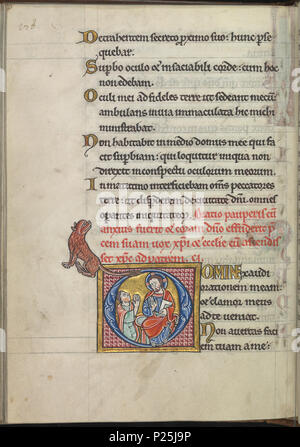 Detrahentem secreto proximo suo: hunc perse
quebar.
Superbo oculo et insaciabili corde: cum hoc
non edebam.
Oculi mei ad fideles terre ut sedeant mecum
ambulans in via immaculata hic michi
ministrabat.
Non habitabit in medio domus mee qui fa
cit superbiam: qui loquitur iniqua non
direxit in conspectu oculorum meorum.
In matutino interficiebam omnes peccatores
terre: ut disperderem de civitate domini omnes
operantes iniquitatem. Oratio pauperis cum
anxius fuerit et coram domino effuderit p
cem suam
DOMINE exaudi
orationem meam:
et clamor meus
ad te veniat.
Non avertas faci
em tuam a me:
alamy
P25J9P